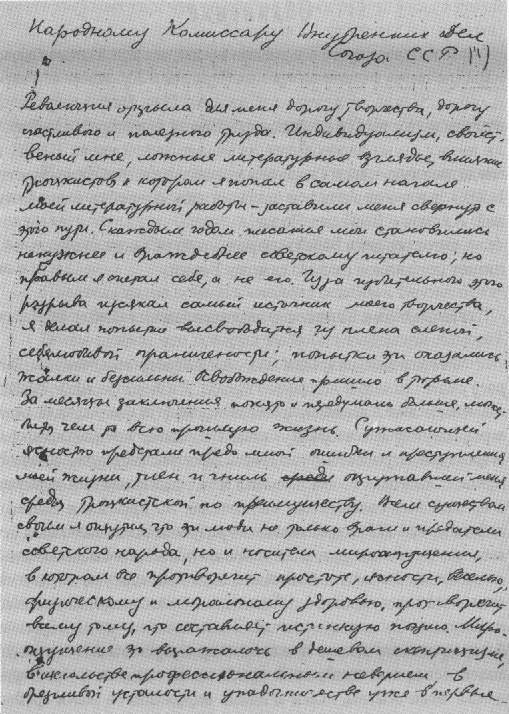 Народному Комиссару Внутренних Дел
Союза ССР
Революция открыла для меня дорогу творчества, дорогу
счастливого и полезного труда. Индивидуализм, свойст-
венный мне, ложные литературные взгляды, влияние
троцкистов, к которым я попал в самом начале
моей литературной работы – заставили меня свернуть с
этого пути. С каждым годом писания мои становились
ненужнее и враждебнее советскому читателю; но
правым я считал себя, а не его. Из-за губительного этого
разрыва иссякал самый источник моего творчества,
я делал попытки высвободиться из плена слепой,
себялюбивой ограниченности; попытки эти оказались
жалки и бессильны. Освобождение пришло в тюрьме.
За месяцы заключения понято и передумано больше, может
быть, чем за всю прошлую жизнь. С ужасающей
ясностью предстали предо мной ошибки и преступления
моей жизни, тлен и гниль среды окружавшей меня
среды, троцкистской по преимуществу. Всем существом
своим я ощутил, что эти люди не только враги и предатели
советского народа, но и носители мироощущения,
в котором все противоречит простоте, ясности, веселью,
физическому и моральному здоровью, противоречит
всему тому, что составляет истинную поэзию. Миро-
ощущение это выражалось в дешевом скептицизме,
в щегольстве профессиональным неверием, в
брезгливой усталости и упадочничестве уже в первые